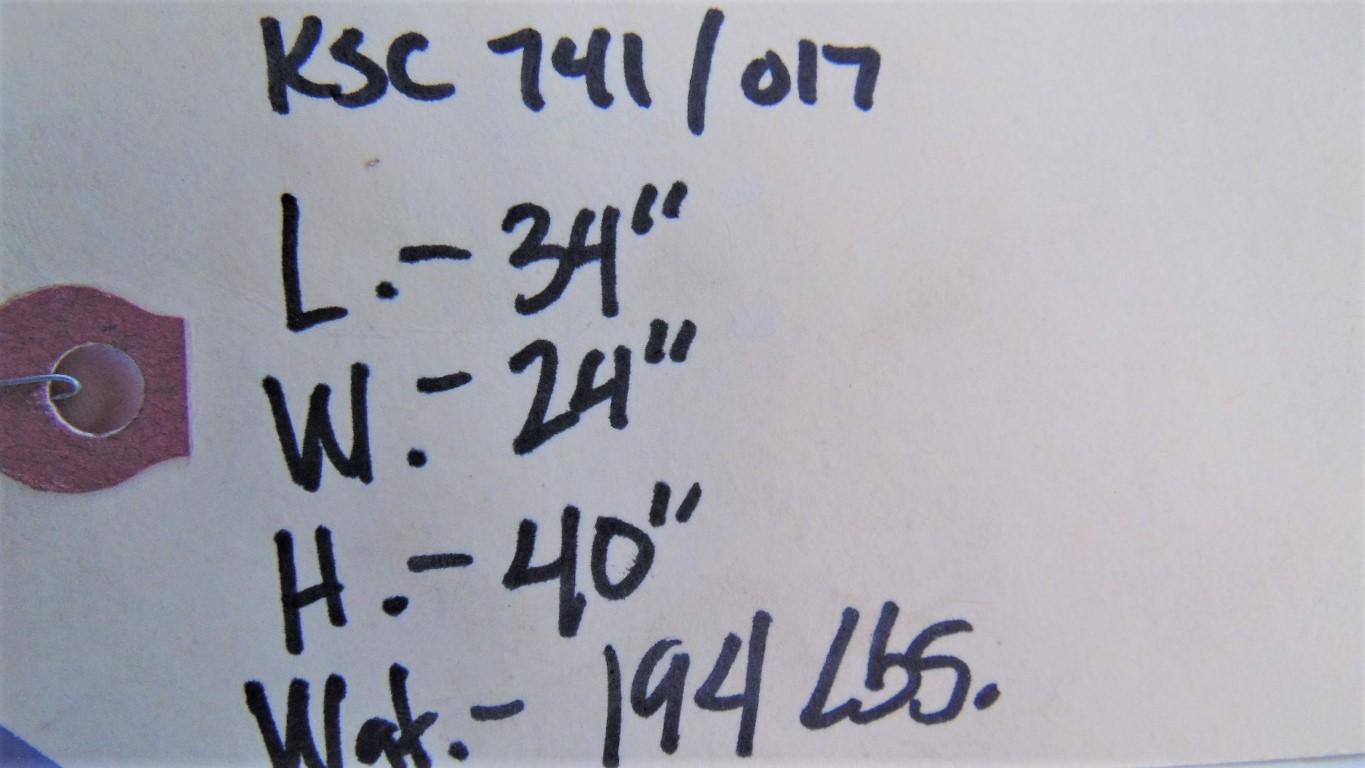 KSC 741/017
L.- 34"
W.- 24"
H.- 40"
Wgt.- 194 Lbs.